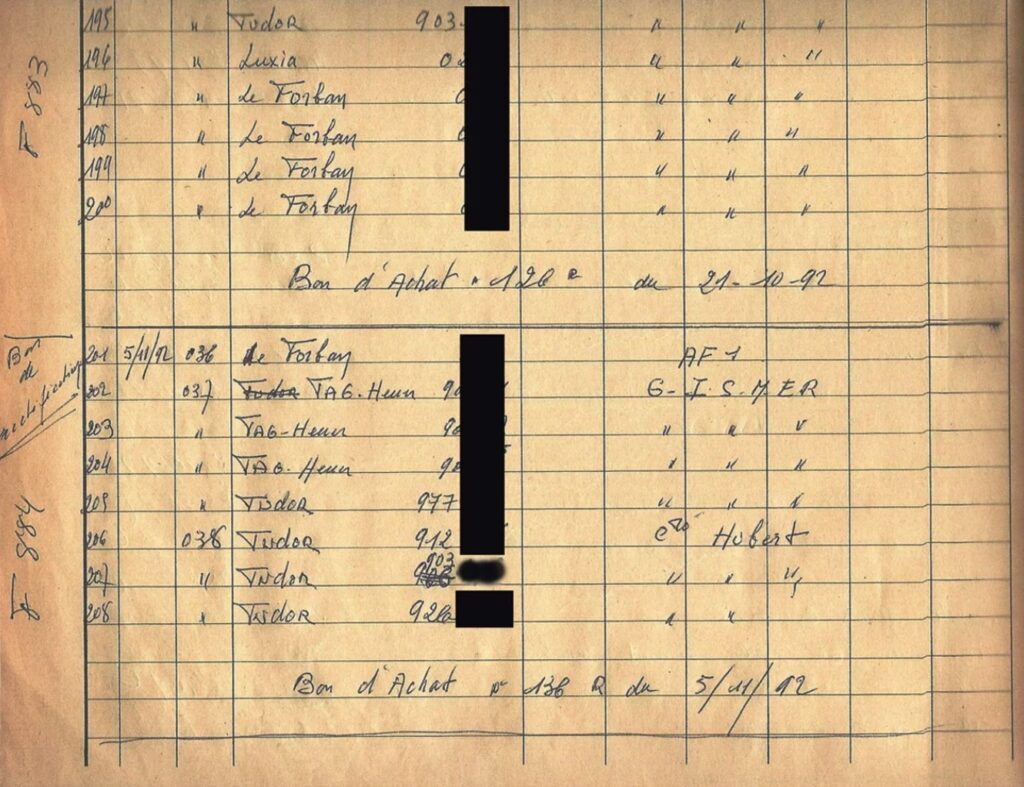 195 " Tudor 903- " " "
196 " Luxia 0 " " "
197 " Le Forban 0 " " "
198 " Le Forban 0 " " "
199 " Le Forban 0 " " "
200 " Le Forban 0 " " "
F 883
Bon d'Achat n° 126 R du 21-10-92
201 5/11/92 036 Le Forban AF 1
202 037 Tudor TAG-Heuer 90 G-I S-M ER
203 " TAG-Heuer 90 " " "
204 " TAG-Heuer 90 " " "
205 " Tudor 977 " " "
206 038 Tudor 912 Hubert
903
207 " Tudor " " "
208 " Tudor 926 " "
Bon
de
rectification
F 884
Bon d'Achat n° 136 R du 5/11/92